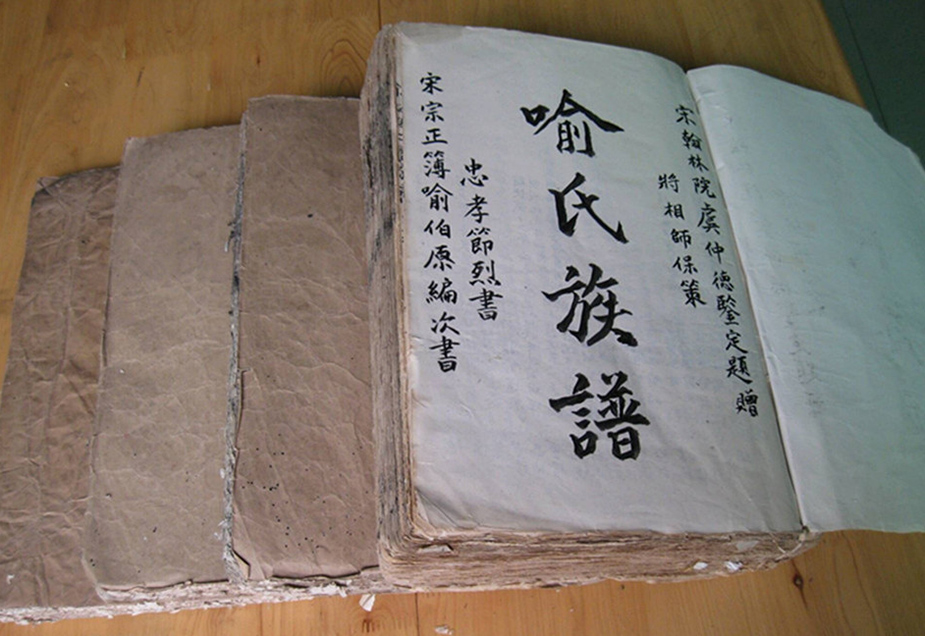 宋翰林院虞仲德鑒定題贈
將相師保策
喻氏族譜
忠孝節烈書
宋宗正簿喻伯原編次書